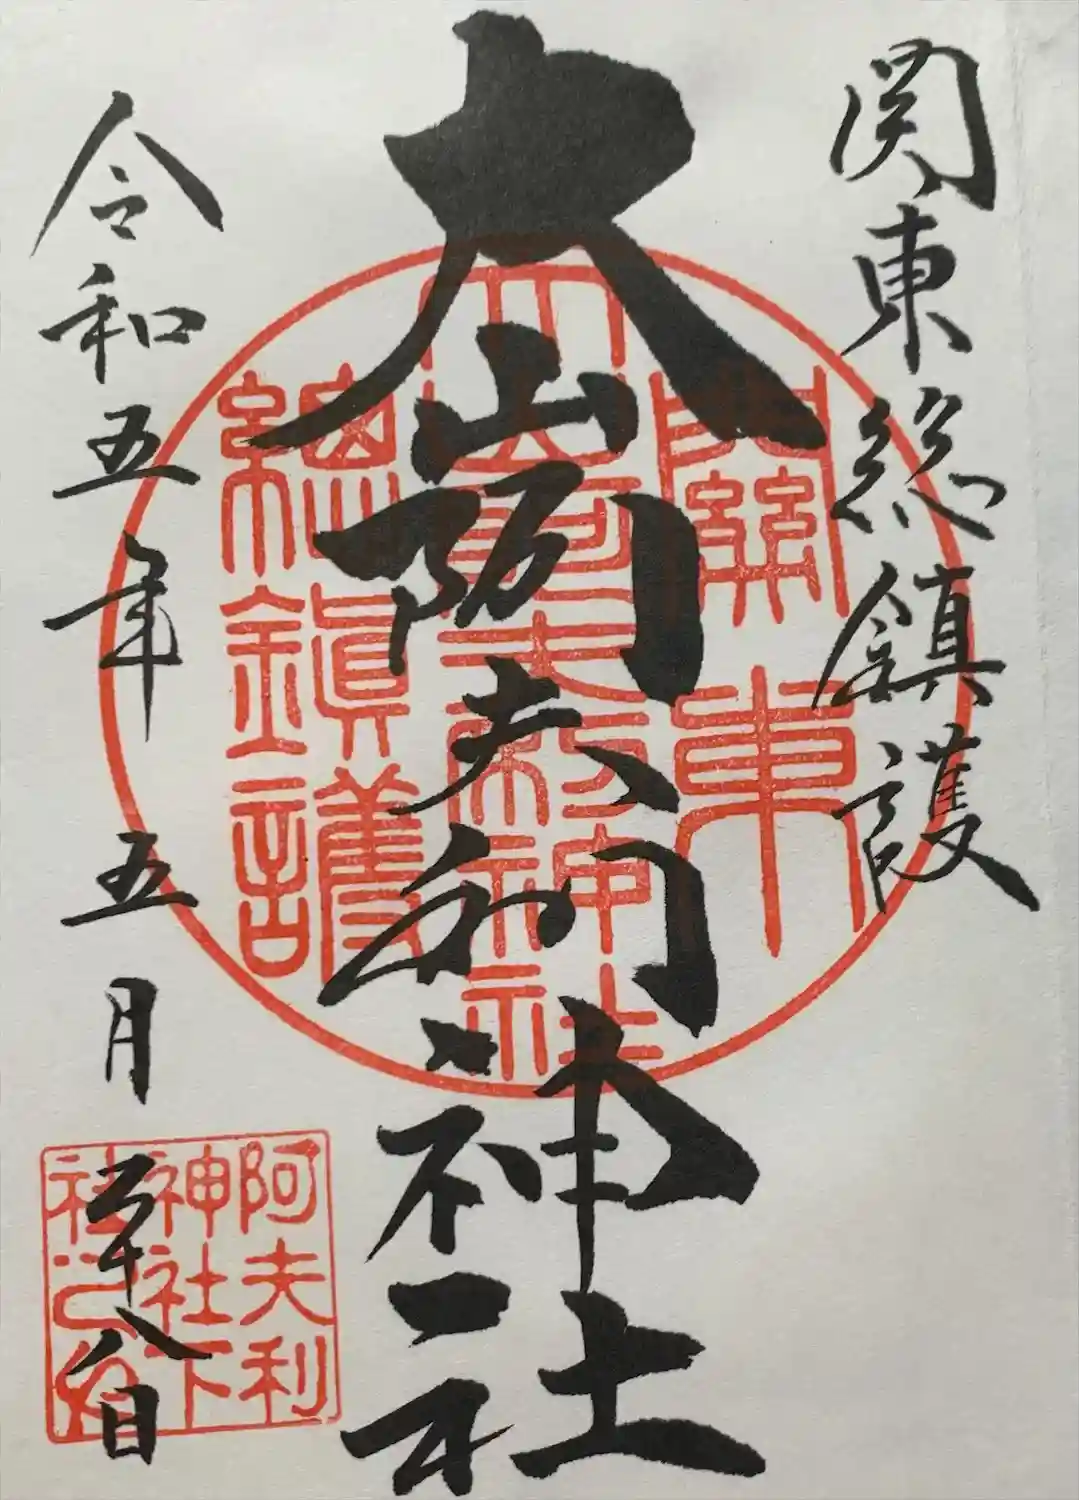 関東総鎮護
大山阿夫利神社
令和五年五月二十八日
關東
大山阿夫利神社
總鎮護
阿夫利
神社下
社之印